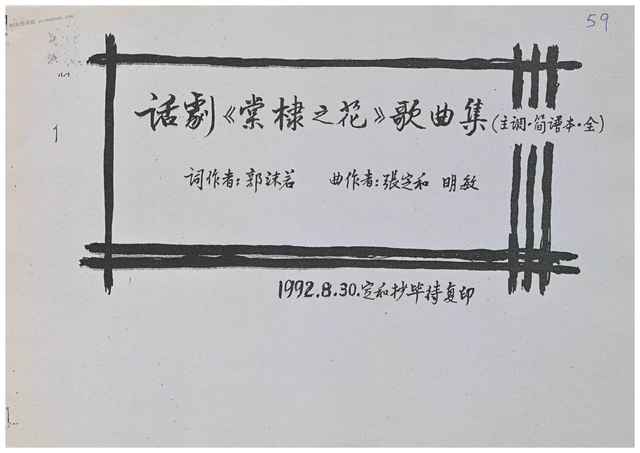 59
话劇《棠棣之花》歌曲集(主调·简谱本·全)
词作者：郭沫若 曲作者：張定和 明敏
1992.8.30.定和抄毕待复印